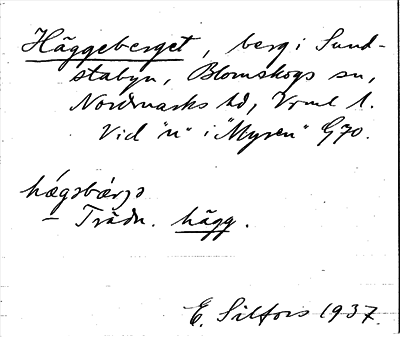 Häggeberget, berg i Sund-
stabyn, Blomskogs sn,
Nordmarks hd, Vrml l.
Vid "n" i "Myren" G70.
hǽgəbǽrjə
– Trädn. hägg.
E. Silfors 1937.